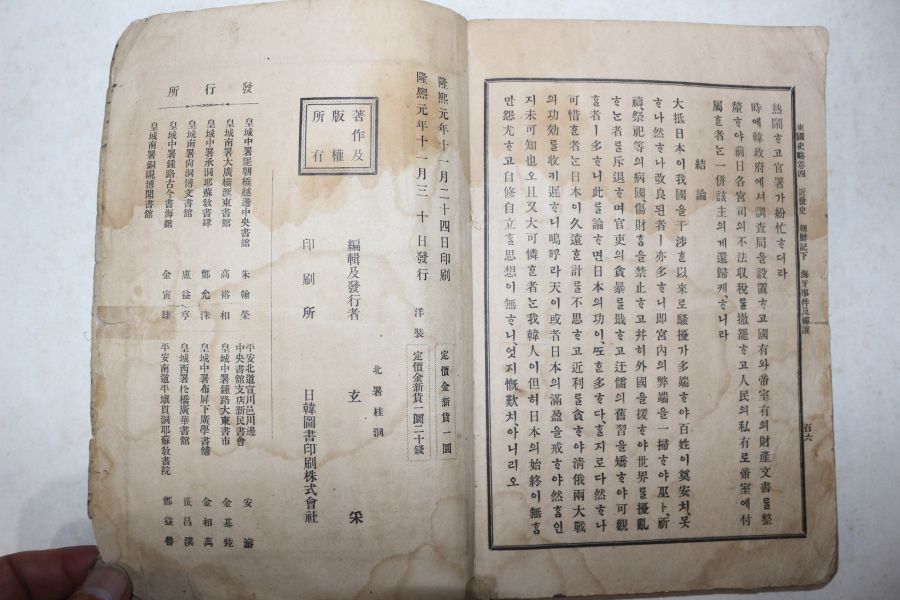 東國史略卷四 近世史 朝鮮記下 海牙事件及禪讓 百六
熱鬧ᄒᆞ고官署가紛忙ᄒᆞ더라
時에韓政府에셔調査局을設置ᄒᆞ고國有와帝室有의財產文書를整
釐ᄒᆞ야前日各宮司의不法收稅를撤罷ᄒᆞ고人民의私有로帝室에付
屬ᄒᆞᆫ者ᄂᆞᆫ一併該主의게還歸케ᄒᆞ니라
結論
大抵日本이我國을干涉ᄒᆞᆫ以來로騷擾가多端ᄒᆞ야百姓이奠安치못
ᄒᆞ나然ᄒᆞ나改良된者ㅣ亦多ᄒᆞ니即宮內의弊端을一掃ᄒᆞ야巫卜祈
禱祭祀等의病國傷財ᄒᆞᆷ을禁止ᄒᆞ고幷히外國을援ᄒᆞ야世界를擾亂
ᄒᆞᄂᆞᆫ者를斥退ᄒᆞ며官吏의貪暴를戢ᄒᆞ고迂儒의舊習을矯ᄒᆞ야可觀
ᄒᆞᆯ者ㅣ多ᄒᆞ니此를論ᄒᆞ면日本의功이ᄯᅩᄒᆞᆫ多ᄒᆞ다ᄒᆞᆯ지로다然ᄒᆞ나
可惜ᄒᆞᆫ者ᄂᆞᆫ日本이久遠ᄒᆞᆫ計를不思ᄒᆞ고近利를貪ᄒᆞ야淸俄兩大戰
의功効를收키遲ᄒᆞ니嗚呼라天이或者日本의滿盈을戒ᄒᆞ야然ᄒᆞᆷ인
지未可知也오且又大可憐ᄒᆞᆫ者ᄂᆞᆫ我韓人이但히日本의始終이無ᄒᆞᆷ
만怨尤ᄒᆞ고自修自立ᄒᆞᆯ思想이無ᄒᆞ니엇지慨歎치아니리오
隆熙元年十一月二十四日印刷
隆熙元年十一月三十日發行
洋裝
定價金新貨一圜
定價金新貨一圜二十錢
北署桂洞
編輯及發行者 玄 采
印刷所 日韓圖書印刷株式會社
著作及
版權
所有
發行所
皇城中署罷朝橋越邊中央書館 朱翰榮
皇城南署大廣橋滙東書館 高裕相
皇城中署承洞耶蘇敎書肆 鄭允洙
皇城南署尙洞博文書館 盧益亨
皇城中署鍾路古今書海館
皇城南署銅峴博聞書館 金寅珪
平安北道宣川邑川邊
中央書館支店新民書會 安 濬
皇城中署鍾路大東書市 金基鉉
皇城中署布屛下廣學書舖 金相萬
皇城西署松橋廣華書館 崔昌漢
平安南道平壤貫洞耶蘇敎書院 鄭益魯